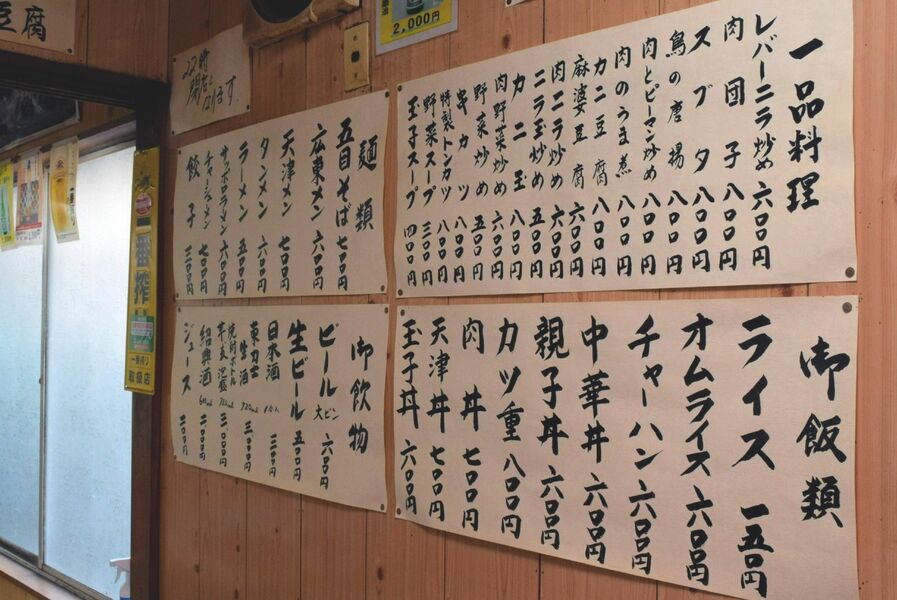 一品料理
レバーニラ炒め 六〇〇円
肉団子 八〇〇円
スブタ 八〇〇円
鳥の唐揚 八〇〇円
肉とピーマン炒め 八〇〇円
肉のうま煮 八〇〇円
カニ豆腐 八〇〇円
麻婆豆腐 六〇〇円
肉ニラ炒め 六〇〇円
ニラ玉 五〇〇円
カニ玉 八〇〇円
肉野菜炒め 六〇〇円
野菜炒め 五〇〇円
串カツ 八〇〇円
特製トンカツ 八〇〇円
野菜スープ 三〇〇円
玉子スープ 四〇〇円
麺類
五目そば 七〇〇円
広東メン 六〇〇円
天津メン 七〇〇円
タンメン 六〇〇円
ラーメン 五〇〇円
サッポロラーメン 六〇〇円
チャーシューメン 七〇〇円
餃子 三〇〇円
御飯類
ライス 一五〇円
オムライス 六〇〇円
チャーハン 六〇〇円
中華丼 六〇〇円
親子丼 六〇〇円
カツ重 八〇〇円
肉丼 七〇〇円
天津丼 七〇〇円
玉子丼 六〇〇円
御飲物
ビール 大ビン 六〇〇円
生ビール 五〇〇円
日本酒 三〇〇円
生酒 720ml 三、〇〇〇円
紹興酒 二、〇〇〇円
ジュース 二〇〇円
22時
閉店と
なります
豆腐
2,000円
一番搾り
取扱店